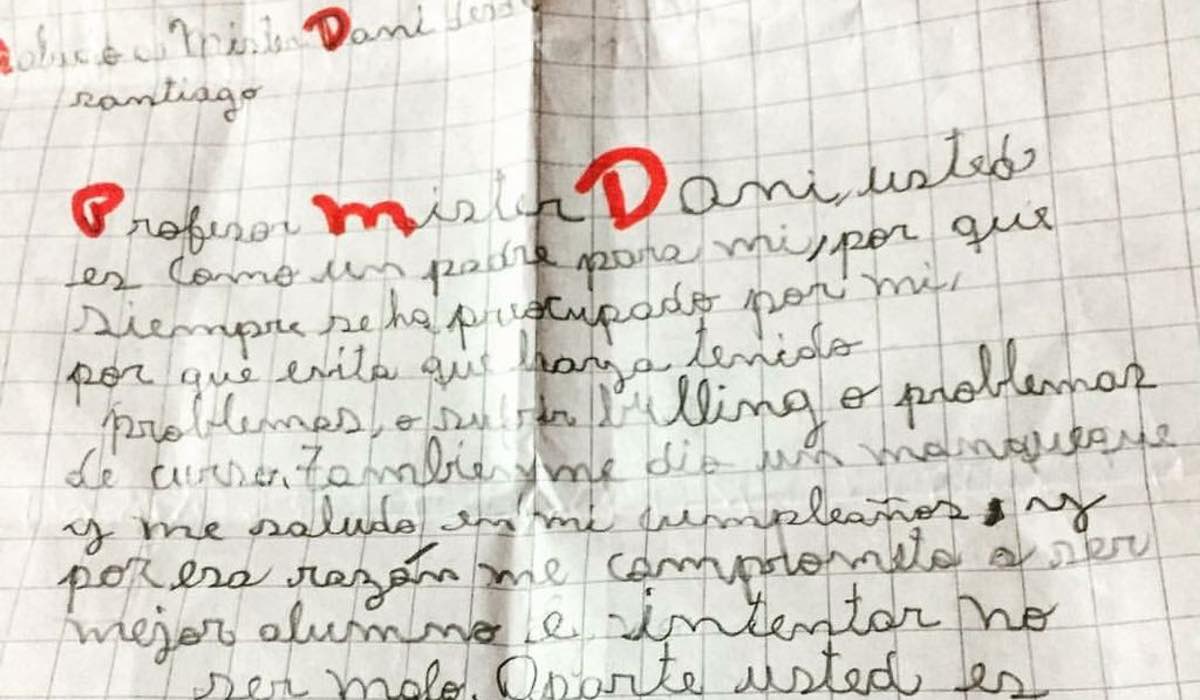 Mister Dani
santiago
Profesor Mister Dani, usted
es como un padre para mi, por que
siempre se ha preocupado por mi,
por que evita que haya tenido
problemas, o sufrir bulling o problemas
de curso. Tambien me dio un manqueque
y me saludo en mi cumpleaños, y
por esa razón me comprometo a ser
mejor alumno e intentar no
ser malo. Aparte usted es